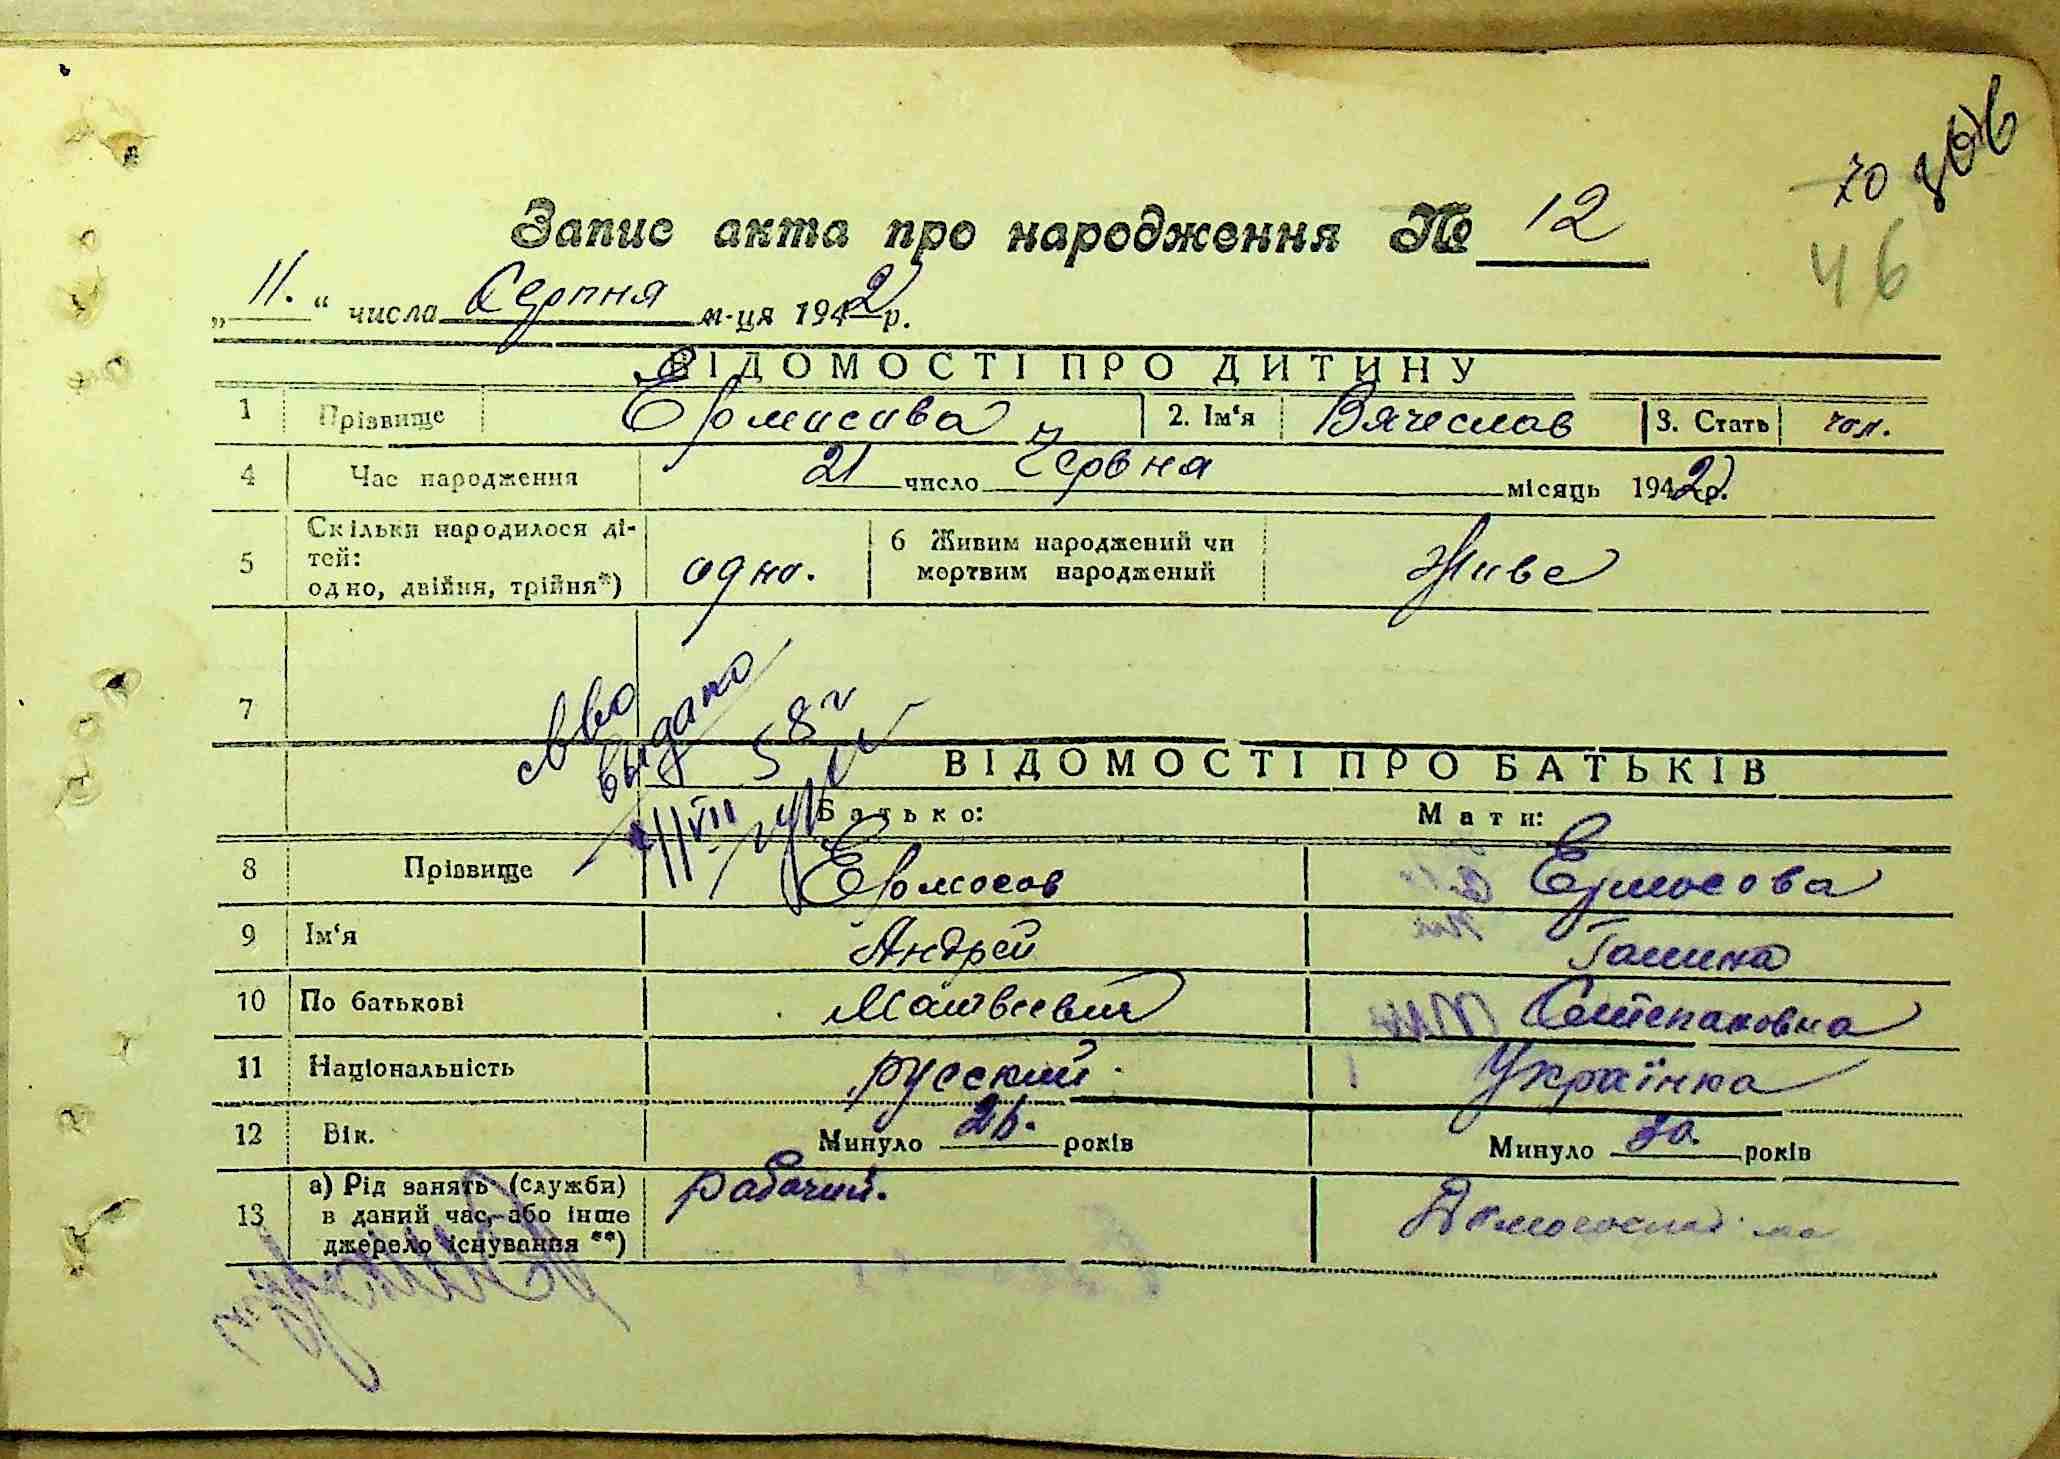 Запис акта про народження № 12
46
„ 11. “ числа Серпня м-ця 1942 р.
ВІДОМОСТІ ПРО ДИТИНУ
1 Прізвище 2. Ім‘я Вячеслав 3. Стать чол.
4 Час народження 21 число Червня місяць 1942 р.
5 Скільки народилося ді-
тей:
одно, двійня, трійня*) одно. 6 Живим народжений чи
мертвим народжений Живе
7
выдано
58 г
11/VII
ВІДОМОСТІ ПРО БАТЬКІВ
Батько: Мати:
8 Прізвище Ермосов Ермосова
9 Ім‘я Андрей Галина
10 По батькові Матвеевич Степановна
11 Національність русский. Українка
12 Вік. Минуло 26. років Минуло 30. років
13 а) Рід занять (служби)
в даний час, або інше
джерело існування **) рабочий.